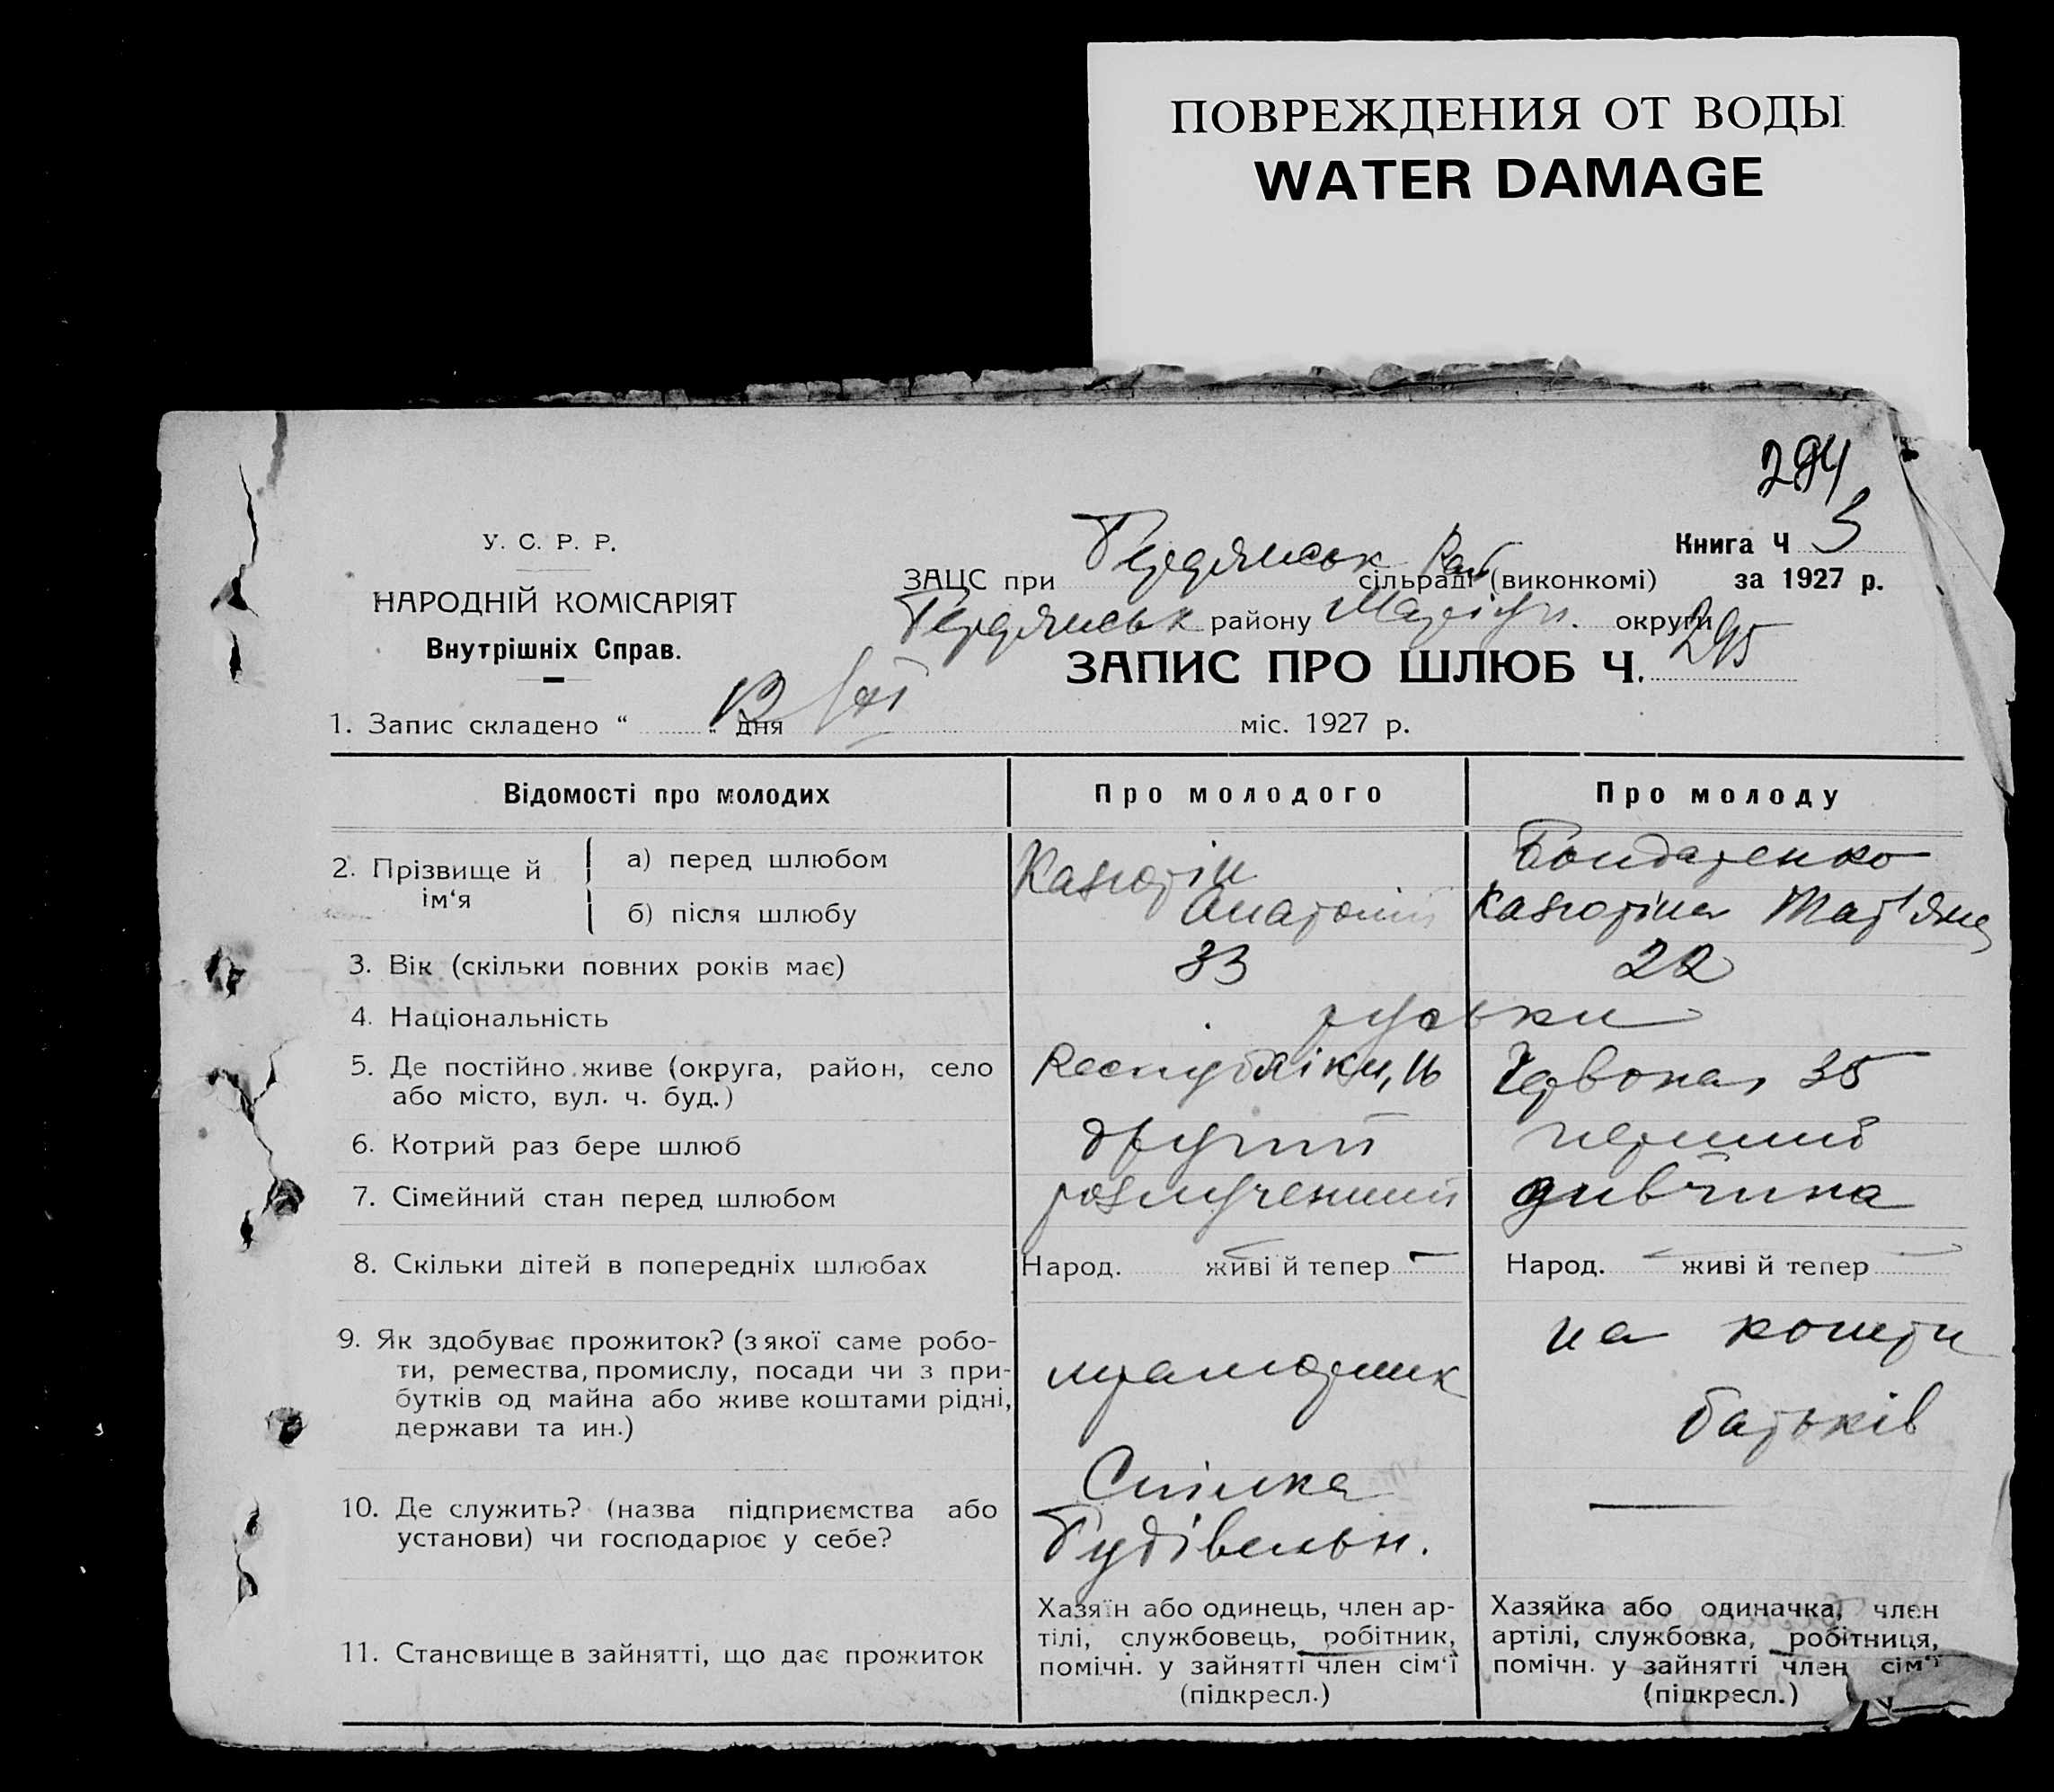 ПОВРЕЖДЕНИЯ ОТ ВОДЫ
WATER DAMAGE
294
У. С. Р. Р.
НАРОДНІЙ КОМІСАРІЯТ
Внутрішніх Справ.
Книга Ч 3
за 1927 р.
ЗАЦС при Бердянськ Рай сільраді (виконкомі)
Бердянськ району Маріуп. округи
ЗАПИС ПРО ШЛЮБ Ч. 295
1. Запис складено “ 13 „ дня міс. 1927 р.
Відомості про молодих
Про молодого
Про молоду
2. Прізвище й ім‘я
а) перед шлюбом
б) після шлюбу
Анатолій
Бондаренко
Тат'яна
3. Вік (скільки повних років має)
33
22
4. Національність
руськи
5. Де постійно живе (округа, район, село
або місто, вул. ч. буд.)
Республіки, 16
Червоная 35
6. Котрий раз бере шлюб
другий
перший
7. Сімейний стан перед шлюбом
розлученний
дивчина
8. Скільки дітей в попередніх шлюбах
Народ. — живі й тепер —
Народ. — живі й тепер —
9. Як здобуває прожиток? (з якої саме робо-
ти, ремества, промислу, посади чи з при-
бутків од майна або живе коштами рідні,
держави та ин.)
мраморник
на кошти
батьків
10. Де служить? (назва підприємства або
установи) чи господарює у себе?
Спілка
Будівельн.
—
11. Становище в зайнятті, що дає прожиток
Хазяїн або одинець, член ар-
тілі, службовець, робітник,
помічн. у зайнятті член сім‘ї
(підкресл.)
Хазяйка або одиначка, член
артілі, службовка, робітниця,
помічн. у зайнятті член сім‘ї
(підкресл.)